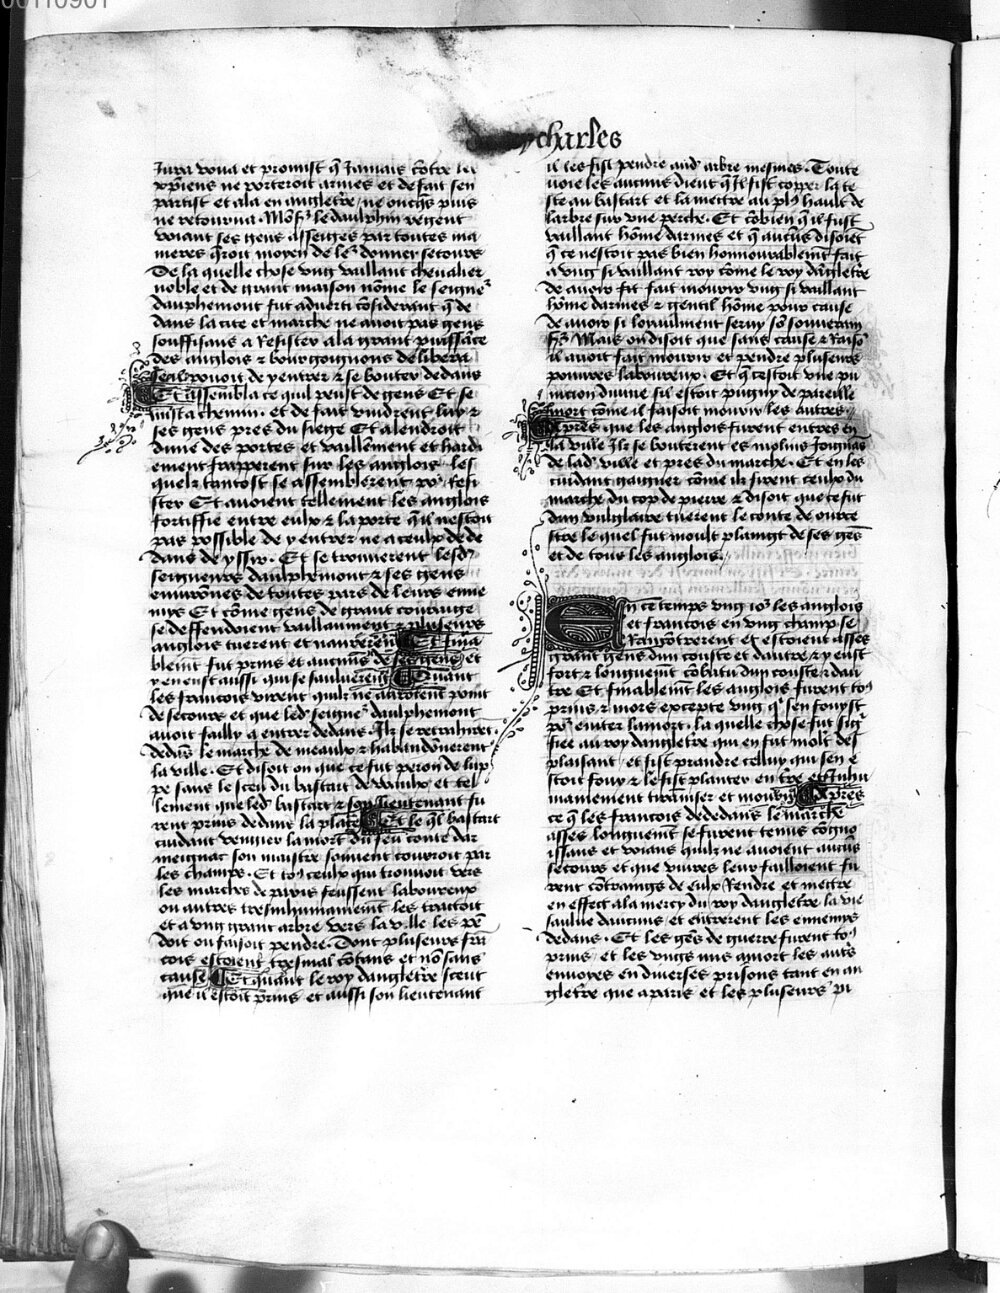 du roy charles
Jura voua et promist q̃ Jamais cõtre les
xp̃iens ne porteroit armes et de fait sen
partist et ala en angletr̃e / ne oncq̃s puis
ne retourna. Mõs̃ le daulphin regent
voiant ses gens asseiges par toutes ma
nieres q̃roit moyen de le² donner secours
De la quelle chose vng vaillant chevalier
noble et de grant maison nõme le seigne²
daulphemont fut aduerti cõsiderant q̃ de
dans la cite et marche ne auoit pas gens
souffisans a Resister a la grant puissãce
des anglois ⁊ bourgoignons delibera
seil pouoit de y entrer ⁊ se bouter dedans
Et assembla ce quil peust de gens Et se
mist a chemin. et de fait vindrent luy ⁊
ses gens pres du siege Et a lendroit
dune des portes et vaillãment et hardi
ement frapperent sur les anglois. les
quelz tantost se assemblerent po² resi
ster Et auoient tellement les anglois
fortiffie entre eulx ⁊ la porte q̃ il nestoit
pas possible de y entrer ne a ceulx de de
dans de yssir. Et se trouuerent lesd̃
seigneurs daulphemont ⁊ ses gens
enuirõnes de toutes pars de leurs enne
mys Et cõme gens de grant couraige
se deffendoient vaillaument ⁊ plusieurs
anglois tuerent et naurerent Et fina
blemt fut prins et aucuns de ses gens et
y en eust aussi qui se sauluerent Quant
les francois virent quilz ne auroient point
de secours et que led̃ seigne² daulphemont
auoit failly a entrer dedans. Ilz se retrahirẽt
dedãs le marche de meaulx ⁊ habandõnerent
la ville. Et disoit on que ce fut peron de lup
pe sans le sceu du bastart de vaulx et tel
lement que led̃ bastart ⁊ son lieutenant fu
rent prins dedans la place Et le q̃l bastart
cuidant vengier la mort du feu conte dar
meignac son maistre souuent couroit par
les champs. Et to⁹ ceulx qui trouuoit vers
les marches de paris feussent laboureux
ou autres tresinhumainemt les traitoit
et a vng grant arbre vers la ville les pẽ
doit ou faisoit pendre. Dont plusieurs frã
cois estoient tresmal cõtans et nõ sans
cause Et quant le roy dangletr̃e sceut
que il estoit prins et aussi son lieutenant
il les fist pendre aud̃ arbre mesmes. Toute
voie les aucuns dient q̃ Il fist copper la te
ste au bastart et la mettre au pl⁹ hault de
larbre sur vne perche. Et cõbien q̃ il fust
vaillant hõme darmes et q̃ aucũs disoiẽt
q̃ ce nestoit pas bien honnourablemt fait
a vng si vaillant roy cõme le roy dãgletr̃e
de auoir fit fait mourir vng si vaillant
hõme darmes ⁊ gentil hõme pour cause
de auoir si loyaulment seruy sõ souuerain
sr̃. Mais on disoit que sans cause ⁊ Raisõ
il auoit fait mourir et pendre plusieurs
pouures laboureux. Et q̃ cestoit vne pu
nicion diuine sil estoit pugny de pareille
mort cõme il faisoit mourir les autres.
Apres que les anglois furent entres en
la ville Ilz se bouterent es molins Joignãs
de lad̃ ville et pres du marche. Et en les
cuidant gaigner cõme ilz firent ceulx du
marche du cop de pierre ⁊ disoit que ce fut
dun vulglaire tuerent le conte de ourre
stre le quel fut moult plaingt de ses gẽs
et de tous les anglois.
En ce temps vng jo² les anglois
et francois en vng champ se
Rancõtrerent et estoient asses
grant gens dun couste et dautre ⁊ y eust
fort ⁊ longuemt cõbatu dun couste ⁊ dau
tre Et finablemt les anglois furent to⁹
prins ⁊ mors excepte vng q̃ sen fouyst
po² euiter la mort. la quelle chose fut sig̃
fiee au roy dangletr̃e qui en fut molt des
plaisant / et fist prandre celluy qui sen e
stoit fouy ⁊ le fist planter en tr̃e et inhu
mainement tiranniser et mourir Apres
ce q̃ les francois dedans le marche
asses longuemt se furent tenus cõgno
issans et voians quilz ne auoient aucũs
secours et que viures leur failloient fu
rent cõtraings de eulx Rendre et mettre
en effect a la mercy du roy dangletr̃e la vie
saulue daucuns et entrerent les ennemys
dedans. Et les gẽs de guerre furent to⁹
prins et les vngs mis a mort les aut̃s
enuoyes en diuerses prisons tant en an
gletr̃e que a paris et les pluseurs pi